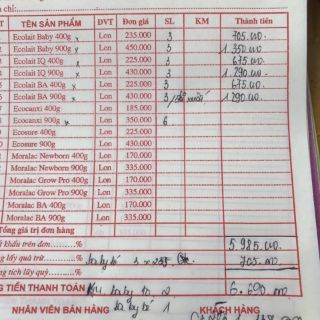 chỉ:
T TÊN SẢN PHẨM ĐVT Đơn giá SL KM Thành tiền
Ecolait Baby 400g x Lon 235.000 3 705.000
Ecolait Baby 900g x Lon 450.000 3 1.350.000
Ecolait IQ 400g x Lon 225.000 3 675.000
Ecolait IQ 900g x Lon 430.000 3 1.290.000
Ecolait BA 400g x Lon 225.000 3 675.000
Ecolait BA 900g x Lon 430.000 3 1.290.000
Ecocanxi 400g Lon 185.000
Ecocanxi 900g x Lon 350.000 6
Ecosure 400g Lon
Ecosure 900g Lon 430.000
Moralac Newborn 400g Lon 170.000
Moralac Newborn 900g Lon 335.000
Moralac Grow Pro 400g Lon 170.000
Moralac Grow Pro 900g Lon 335.000
Moralac BA 400g Lon 170.000
Moralac BA 900g Lon 335.000
Tổng giá trị đơn hàng
khấu trên đơn........% 5.985.000
lấy quà trừ........% 705.000
tích lũy quý........%
TIỀN THANH TOÁN 2 6.690.000
NHÂN VIÊN BÁN HÀNG 1 KHÁCH HÀNG